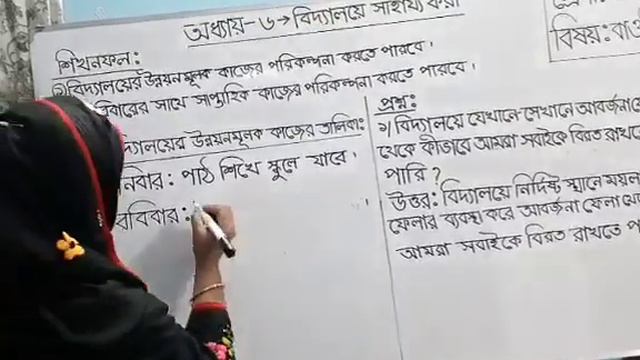 অধ্যায়-৬→বিদ্যালয়ে সাহায্য করা
বিষয়: বাও
শিখনফল:
বিদ্যালয়ের উন্নয়নমূলক কাজের পরিকল্পনা করতে পারবে।
বারের সাথে সাপ্তাহিক কাজের পরিকল্পনা করতে পারবে।
দ্যালয়ের উন্নয়নমূলক কাজের তালিকা:
নিবার: পাঠ শিখে স্কুলে যাবে।
রবিবার:
প্রশ্ন:
১) বিদ্যালয়ে যেখানে সেখানে আবর্জনা
থেকে কীভাবে আমরা সবাইকে বিরত রাখ
পারি?
উত্তর: বিদ্যালয়ে নির্দিষ্ট স্থানে ময়ল
ফেলার ব্যবস্থা করে আবর্জনা ফেলা থে
আমরা সবাইকে বিরত রাখতে প